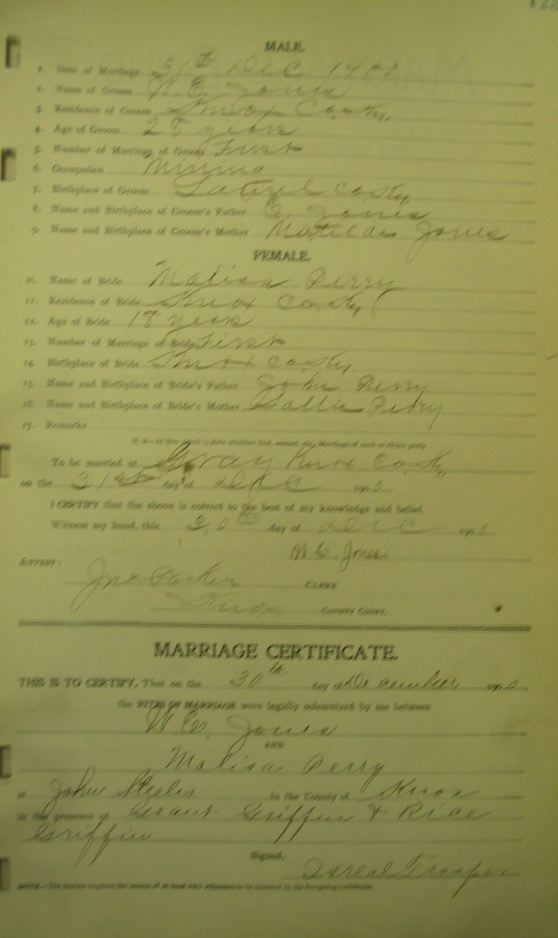 MALE.
1. Date of Marriage 31st Dec 190
2. Name of Groom W. C. Jones
3. Residence of Groom Knox Co. Ky.
4. Age of Groom years
5. Number of Marriage of Groom First
6. Occupation Mining
7. Birthplace of Groom Laurel Co Ky
8. Name and Birthplace of Groom's Father Jones
9. Name and Birthplace of Groom's Mother Matilda Jones
FEMALE.
10. Name of Bride Malisa Perry
11. Residence of Bride Knox Co. Ky
12. Age of Bride years
13. Number of Marriage of Bride First
14. Birthplace of Bride Knox Co. Ky.
15. Name and Birthplace of Bride's Father John Perry
16. Name and Birthplace of Bride's Mother Sallie Perry
17. Remarks
To be married at Gray Knox Co. Ky,
on the 31st day of Dec 190
I CERTIFY that the above is correct to the best of my knowledge and belief.
Witness my hand, this 30th day of Dec 190
W. C. Jones
ATTEST:
Jno Parker CLERK
Knox COUNTY COURT.
MARRIAGE CERTIFICATE.
THIS IS TO CERTIFY, That on the 30th day of December 190
the RITES OF MARRIAGE were legally solemnized by me between
W. C. Jones
AND
Malisa Perry
at John in the County of Knox
in the presence of Grant Griffin & Rice
Griffin
Signed,